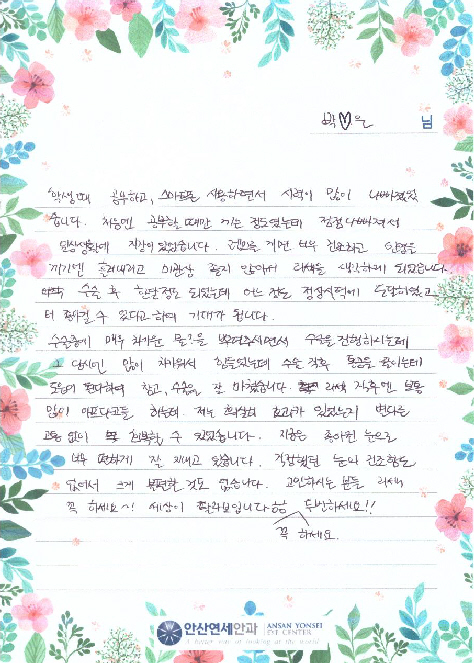 박♡은 님
학생때 공부하고, 스마트폰 사용하면서 시력이 많이 나빠졌었
습니다. 처음엔 공부할 때만 끼는 정도였는데 점점 나빠져서
일상생활에 지장이 있었습니다. 렌즈를 끼면 너무 건조하고 안경은
끼기엔 흘러내리고 미관상 좋지 않아서 라섹을 생각하게 되었습니다.
아직 수술 후 한달정도 되었는데 어느 정도 정상시력에 도달하였고
더 좋아질 수 있다고 하여 기대가 됩니다.
수술중에 매우 차가운 물?을 뿌려주시면서 수술을 진행하시는데
그 당시엔 많이 차가워서 힘들었는데 수술 직후 통증을 줄이는데
도움이 된다하여 참고, 수술을 잘 마쳤습니다. 라섹 직후엔 보통
많이 아프다고들 하는데, 저는 확실히 효과가 있었는지 별다른
고통 없이 회복할 수 있었습니다. 지금은 좋아진 눈으로
너무 편하게 잘 지내고 있습니다. 걱정했던 눈의 건조함도
없어서 크게 불편한 것도 없습니다. 고민하시는 분들 라섹
꼭 하세요~! 세상이 달라보입니다 ㅎㅎ 두번하세요!!
꼭 하세요.
안산연세안과 ANSAN YONSEI
EYE CENTER
A better way of looking at the world